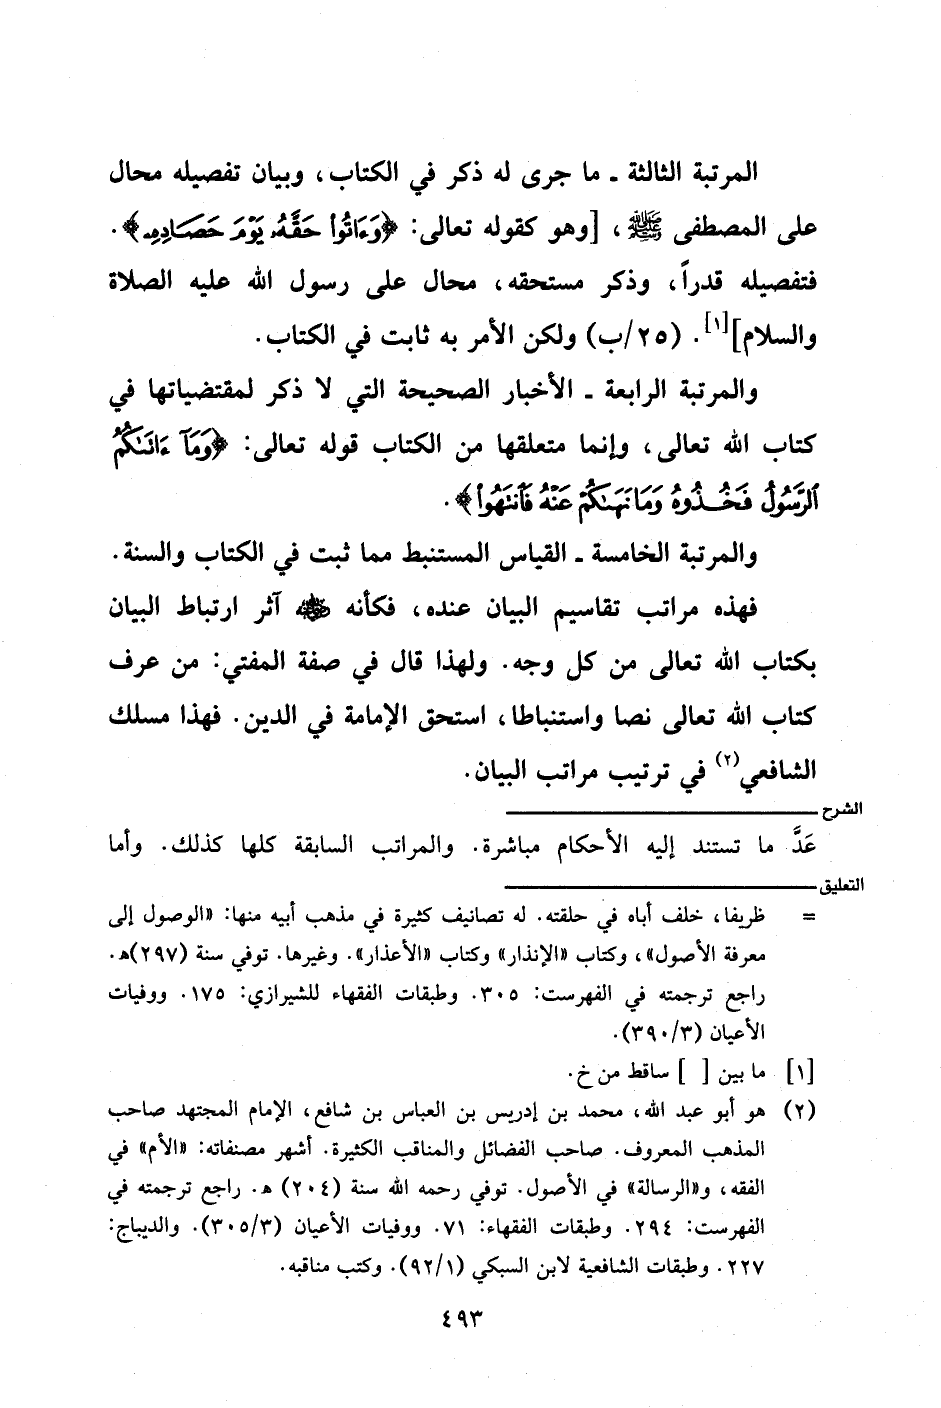 المرتبة الثالثة ـ ما جرى له ذكر في الكتاب، وبيان تفصيله محال
على المصطفى ﷺ، [وهو كقوله تعالى: ﴿وَءَاتُوا۟ حَقَّهُۥ يَوْمَ حَصَادِهِۦ﴾.
فتفصيله قدراً، وذكر مستحقه، محال على رسول الله عليه الصلاة
والسلام][١]. (٢٥/ب) ولكن الأمر به ثابت في الكتاب.
والمرتبة الرابعة ـ الأخبار الصحيحة التي لا ذكر لمقتضياتها في
كتاب الله تعالى، وإنما متعلقها من الكتاب قوله تعالى: ﴿وَمَآ ءَاتَىٰكُمُ
ٱلرَّسُولُ فَخُـذُوهُ وَمَا نَهَىٰكُمْ عَنْهُ فَٱنتَهُوا۟﴾.
والمرتبة الخامسة ـ القياس المستنبط مما ثبت في الكتاب والسنة.
فهذه مراتب تقاسيم البيان عنده، فكأنه رضي الله عنه آثر ارتباط البيان
بكتاب الله تعالى من كل وجه. ولهذا قال في صفة المفتي: من عرف
كتاب الله تعالى نصا واستنباطا، استحق الإمامة في الدين. فهذا مسلك
الشافعي(٢) في ترتيب مراتب البيان.
الشرح
عَدَّ ما تستند إليه الأحكام مباشرة. والمراتب السابقة كلها كذلك. وأما
التعليق
= ظريفا، خلف أباه في حلقته. له تصانيف كثيرة في مذهب أبيه منها: «الوصول إلى
معرفة الأصول»، وكتاب «الإنذار» وكتاب «الأعذار». وغيرها. توفي سنة (٢٩٧)هـ.
راجع ترجمته في الفهرست: ٣٠٥. وطبقات الفقهاء للشيرازي: ١٧٥. ووفيات
الأعيان (٣٩٠/٣).
[١] ما بين [ ] ساقط من خ.
(٢) هو أبو عبد الله، محمد بن إدريس بن العباس بن شافع، الإمام المجتهد صاحب
المذهب المعروف. صاحب الفضائل والمناقب الكثيرة. أشهر مصنفاته: «الأم» في
الفقه، و«الرسالة» في الأصول. توفي رحمه الله سنة (٢٠٤) هـ. راجع ترجمته في
الفهرست: ٢٩٤. وطبقات الفقهاء: ٧١. ووفيات الأعيان (٣٠٥/٣). والديباج:
٢٢٧. وطبقات الشافعية لابن السبكي (٩٢/١). وكتب مناقبه.
٤٩٣